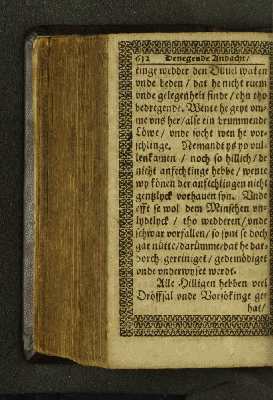 612 Denegende Andacht/
tinge wedder den Düuel waken
vnde beden / dat he nicht ruem
vnde gelegenheit finde / ehn tho
bedregende. Wente he geyt om-
me vns her/ alse ein brummende
Löwe / vnde socht wen he vor-
schlinge. Nemandt ys so vul-
lenkamen / noch so hillich/ de
nicht anfechtinge hebbe / wente
wy könen der anfechtingen nicht
gentzlyck vorhauen syn. Vnde
efft se wol dem Minschen vn-
lydtlyck / tho wedderen / vnde
schwar vorfallen/ so synt se doch
gar nütte/ darümme/ dat he dar-
dorch gereiniget / gedemödiget
vnde vnderwyset werdt.
Alle Hilligen hebben veel
Dröffsal vnde Vorsökinge ge-
hat/